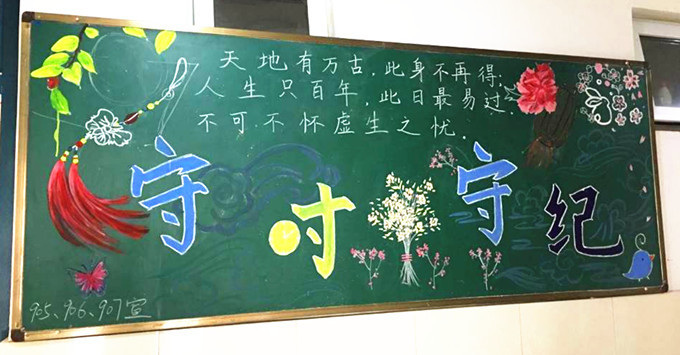 天地有万古，此身不再得；
人生只百年，此日最易过．
不可不怀虚生之忧．
守时守纪
905、906、907宣